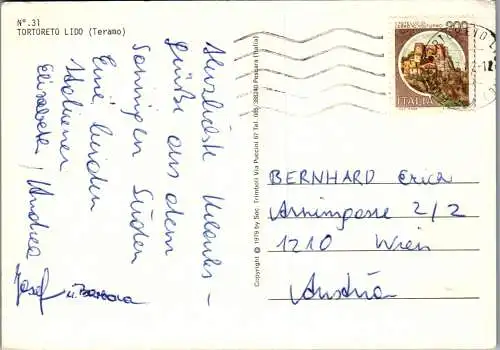 N°.31
TORTORETO LIDO (Teramo)
Herzlichste Urlaubs-
grüße aus dem
sonnigen Süden
Eure beiden
Italiener
Elisabeth / Andrea
Josef u. Barbara
Copyright © 1979 by Soc. Trimboli Via Puccini 67 Tel. 085/388243 Pescara (Italia)
CASTELLO DI
CERRO AL VOLTURNO
ITALIA
BERNHARD Erica
Arnimgasse 2/2
1210 Wien
Austria